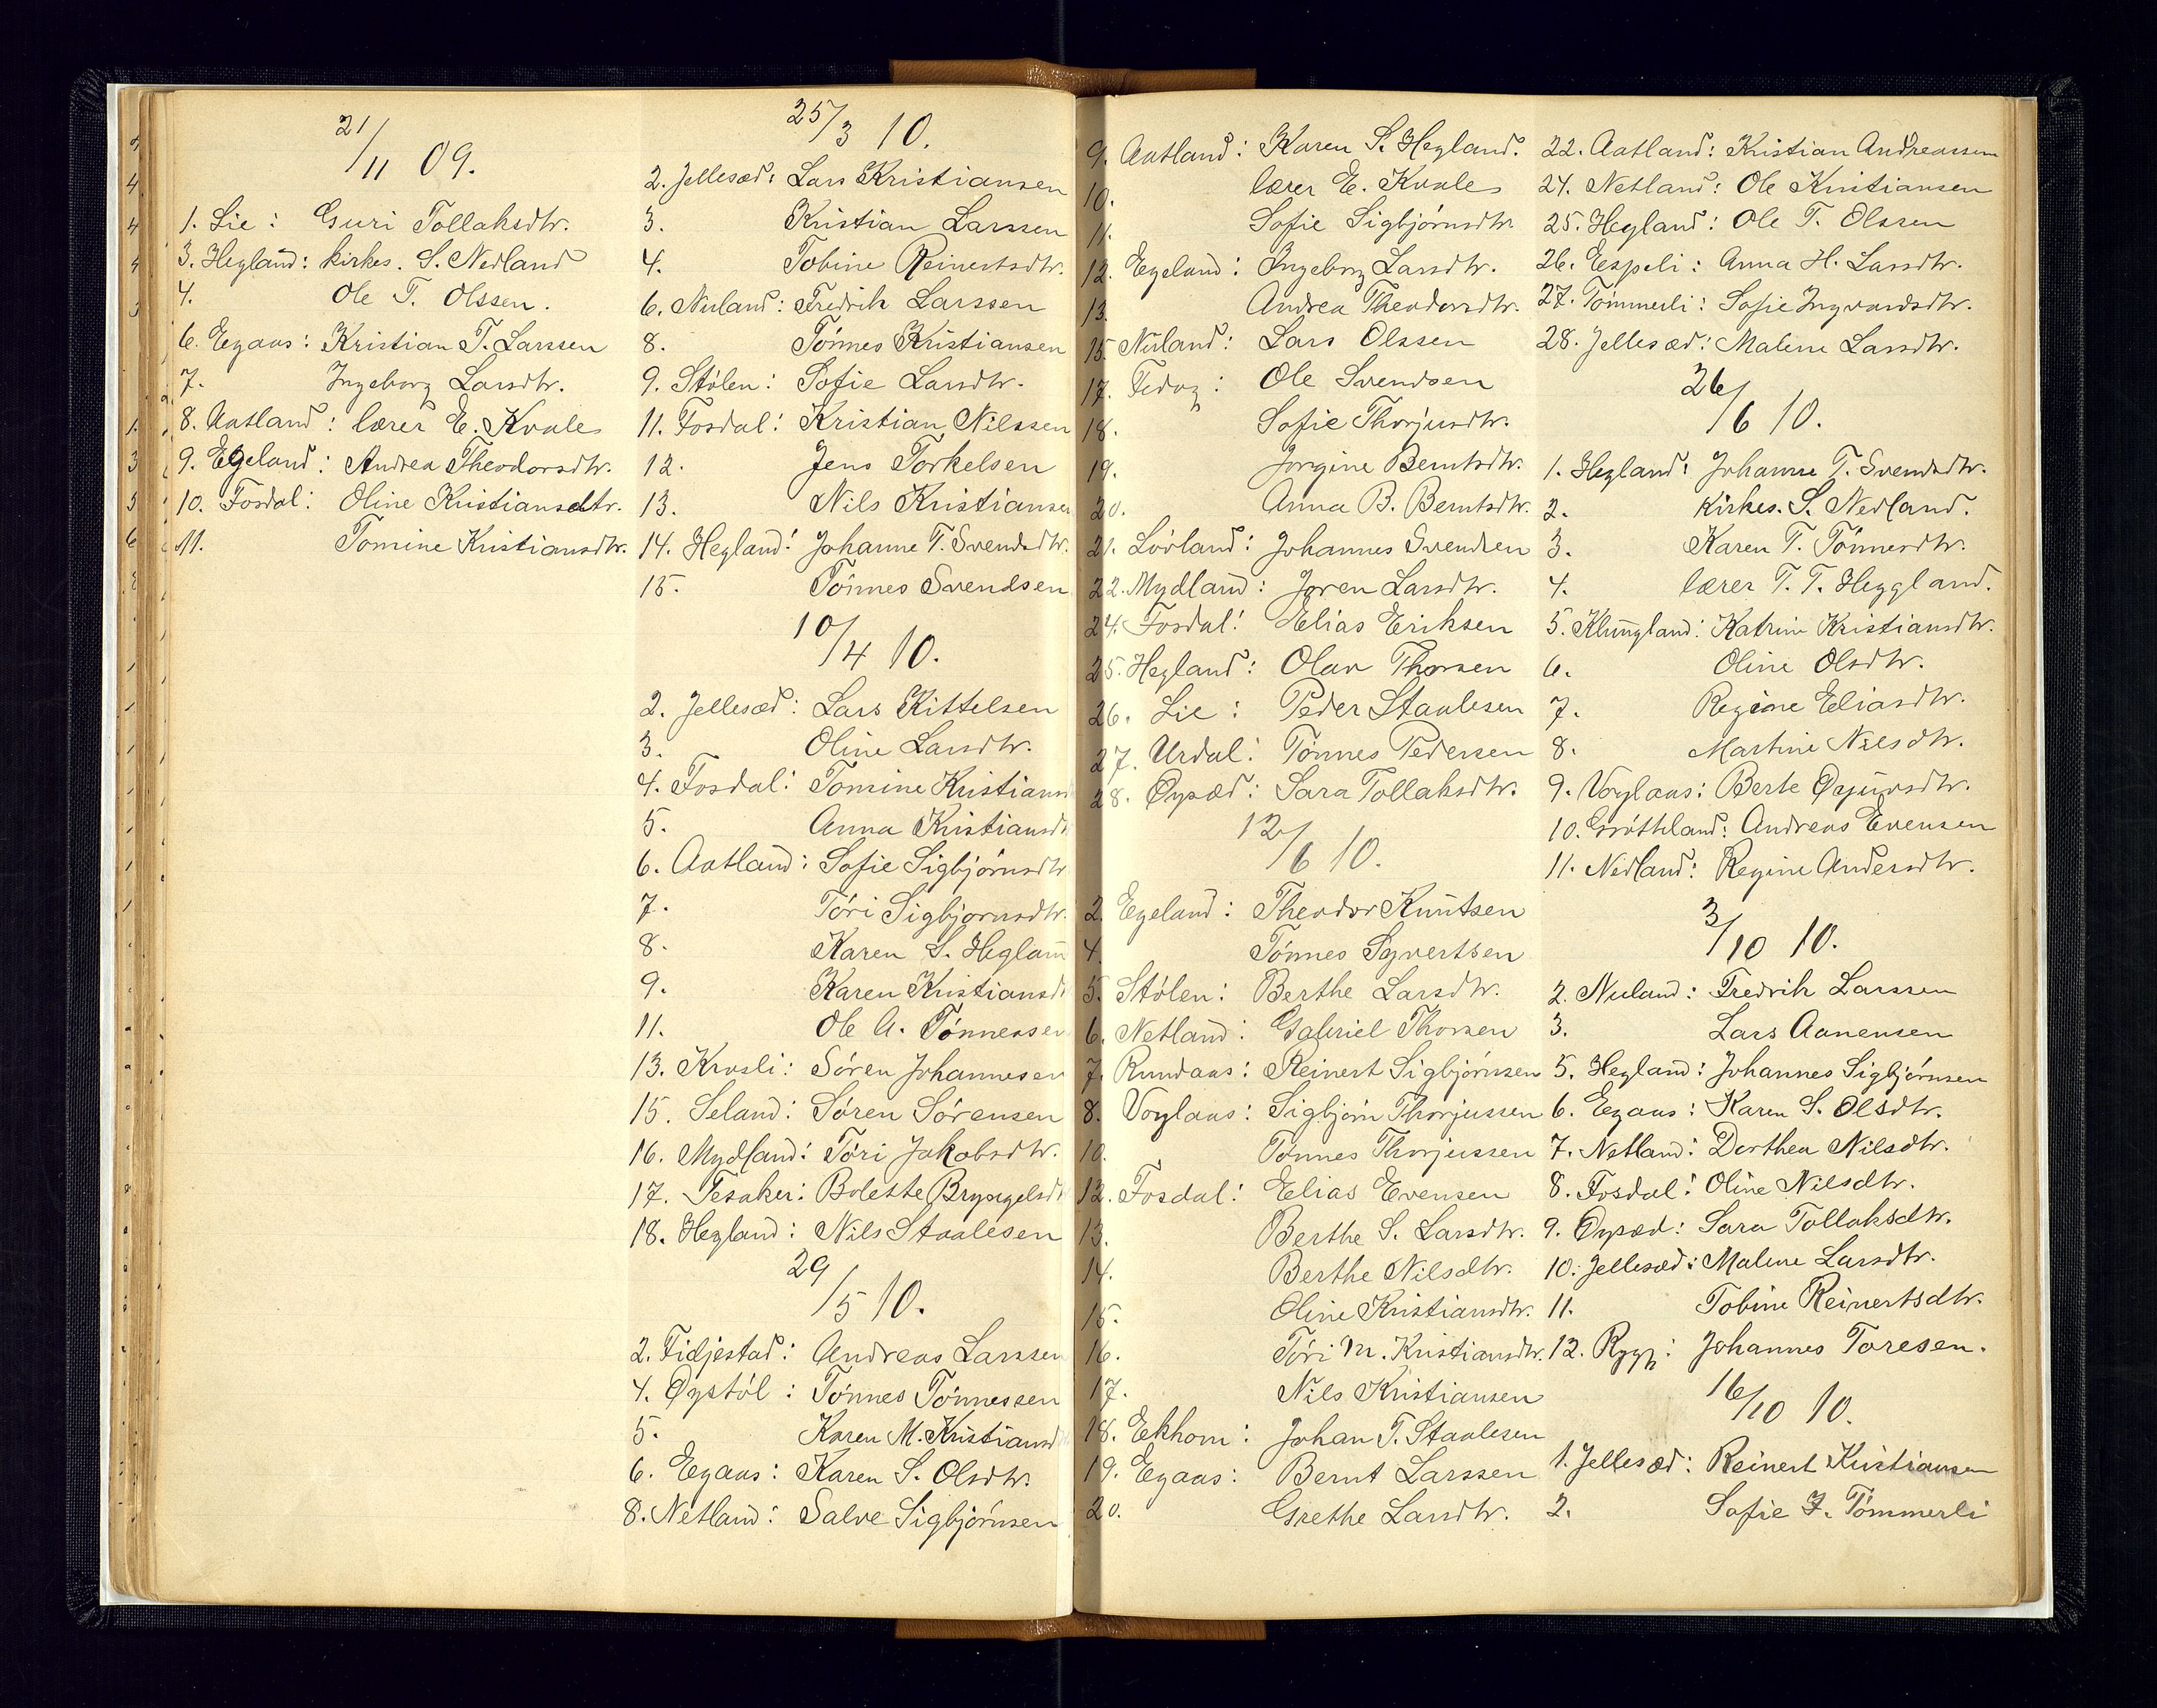 21/11 09.
1. Lie: Guri Tollaksdtr.
3. Hegland: kirkes. S. Nedland
4. Ole T. Olssen.
6. Egaas: Kristian T. Larssen
7. Ingeborg Larsdtr.
8. Aatland: lærer E. Kvale
9. Egeland: Andrea Theodorsdtr.
10. Fosdal: Oline Kristiansdtr.
11. Tomine Kristiansdtr.
25/3 10.
2. Jellesæd: Lars Kristiansen
3. Kristian Larssen
4. Tobine Reinertsdtr.
6. Nuland: Fredrik Larssen
8. Tønnes Kristiansen
9. Stølen: Sofie Larsdtr.
11. Fosdal: Kristian Nilssen
12. Jens Torkelsen
13. Nils Kristiansen
14. Hegland: Johanne T. Svendsdtr.
15. Tønnes Svendsen
10/4 10.
2. Jellesæd: Lars Kittelsen
3. Oline Larsdtr.
4. Fosdal: Tomine Kristiansd
5. Anna Kristiansdt
6. Aatland: Sofie Sigbjørnsdtr
7. Tøri Sigbjørnsdtr.
8. Karen S. Heglan
9. Karen Kristiansdt
11. Ole A. Tønnessen
13. Krosli: Søren Johannesen
15. Seland: Søren Sørensen
16. Mydland: Tøri Jakobsdtr.
17. Tesaker: Bolette Bryngelsdt
18. Hegland: Nils Staalesen
29/5 10.
2. Fidjestad: Andreas Larssen
4. Øystøl: Tønnes Tønnessen
5. Karen M. Kristiansd
6. Egaas: Karen S. Olsdtr.
8. Netland: Salve Sigbjørnsen
9. Aatland: Karen S. Hegland.
10. lærer E. Kvale
11. Sofie Sigbjørnsdtr
12. Egeland: Ingeborg Larsdtr.
13. Andrea Theodorsdtr.
15. Nuland: Lars Olssen
17. Fedog: Ole Svendsen
18. Sofie Thorjusdtr.
19. Jorgine Berntsdtr.
20. Anna B. Berntsdtr.
21. Løvland: Johannes Svendsen
22. Mydland: Jøren Larsdtr.
24. Fosdal: Elias Eriksen
25. Hegland: Olav Thorsen
26. Lie: Peder Staalesen
27. Urdal: Tønnes Pedersen
28. Øysæd: Sara Tollaksdtr.
12/6 10.
2. Egeland: Theodor Knutsen
4. Tønnes Syvertsen
5. Stølen: Berthe Larsdtr.
6. Netland: Gabriel Thorsen
7. Rundaas: Reinert Sigbjørnsen
8. Voglaas: Sigbjørn Thorjussen
10. Tønnes Thorjussen
12. Fosdal: Elias Evensen
13. Berthe S. Larsdtr.
14. Berthe Nilsdtr.
15. Oline Kristiansdtr.
16. Tøri M. Kristiansdtr.
17. Nils Kristiansen
18. Ekhom: Johan T. Staalesen
19. Egaas: Bernt Larssen
20. Grethe Larsdtr.
22. Aatland: Kristian Andreassen
24. Netland: Ole Kristiansen
25. Hegland: Ole T. Olssen
26. Espeli: Anna H. Larsdtr.
27. Tømmerli: Sofie Ingvardsdtr.
28. Jellesæd: Maline Larsdtr.
26/6 10.
1. Hegland: Johanne T. Svendsdtr.
2. Kirkes. S. Nedland.
3. Karen T. Tønnesdtr.
4. lærer T. T. Heggland.
5. Klungland: Katrine Kristiansdtr.
6. Oline Olsdtr.
7. Regine Eliasdtr.
8. Martine Nilsdtr.
9. Voglaas: Berte Øyuvsdtr.
10. Grøthland: Andreas Evensen
11. Nedland: Regine Andersdtr.
3/10 10.
2. Nuland: Fredrik Larssen
3. Lars Aanensen
5. Hegland: Johannes Sigbjørnsen
6. Egaas: Karen S. Olsdtr.
7. Netland: Dorthea Nilsdtr.
8. Fosdal: Oline Nilsdtr.
9. Øysæd: Sara Tollaksdtr.
10. Jellesæd: Maline Larsdtr.
11. Tobine Reinertsdtr.
12. Rygg: Johannes Toresen.
16/10 10.
1. Jellesæd: Reinert Kristiansen
2. Sofie J. Tømmerli